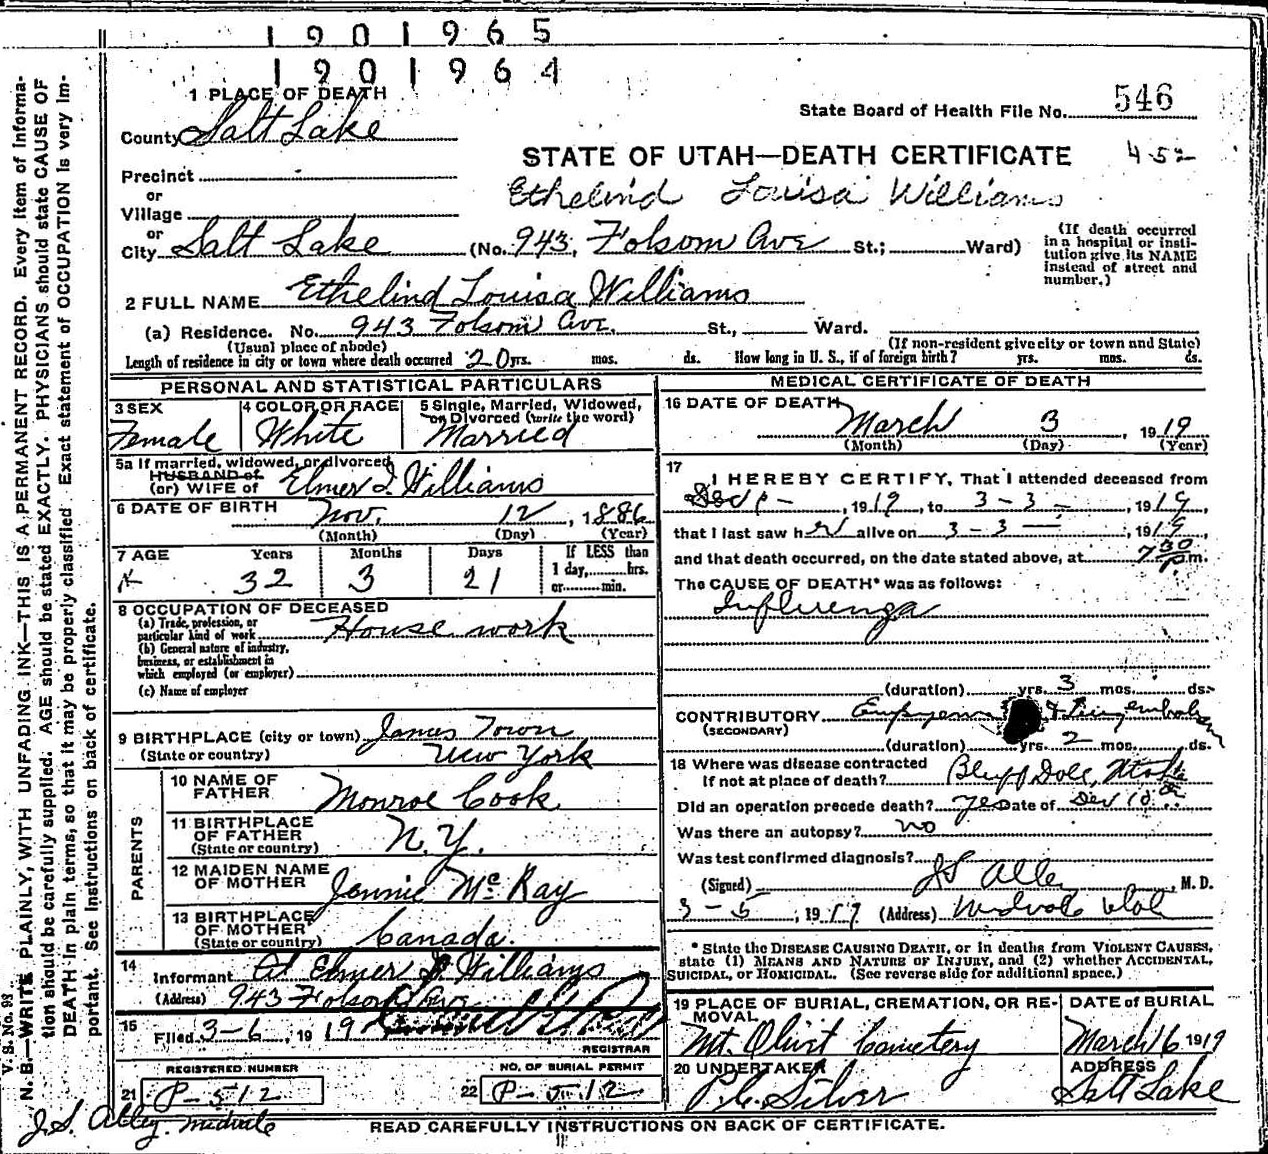 1901965
1901964
1 PLACE OF DEATH
State Board of Health File No. 546
County Salt Lake
STATE OF UTAH—DEATH CERTIFICATE 452
Precinct
Ethelind Louisa Williams
or
Village
or
City Salt Lake (No. 943, Folsom Ave St.; Ward)
(If death occurred in a hospital or institution give its NAME instead of street and number.)
2 FULL NAME Ethelind Louisa Williams
(a) Residence. No. 943 Folsom Ave. St., Ward.
(Usual place of abode) (If non-resident give city or town and State)
Length of residence in city or town where death occurred 20 yrs. mos. ds. How long in U. S., if of foreign birth? yrs. mos. ds.
PERSONAL AND STATISTICAL PARTICULARS
3 SEX 4 COLOR OR RACE 5 Single, Married, Widowed,
or Divorced (write the word)
Female White Married
5a If married, widowed, or divorced
HUSBAND of
(or) WIFE of Elmer I. Williams
6 DATE OF BIRTH Nov. 12, 1886
(Month) (Day) (Year)
7 AGE Years Months Days If LESS than
1 day, hrs.
or min.
32 3 21
8 OCCUPATION OF DECEASED
(a) Trade, profession, or
particular kind of work House work
(b) General nature of industry,
business, or establishment in
which employed (or employer)
(c) Name of employer
9 BIRTHPLACE (city or town) James Town
(State or country) New York
PARENTS
10 NAME OF
FATHER Monroe Cook
11 BIRTHPLACE
OF FATHER N.Y.
(State or country)
12 MAIDEN NAME
OF MOTHER Jennie McKay
13 BIRTHPLACE
OF MOTHER
(State or country) Canada.
14
Informant Elmer Williams
(Address) 943 Folsom Ave
15
Filed 3-6, 1919
REGISTRAR
REGISTERED NUMBER NO. OF BURIAL PERMIT
21 P-512 22 P-512
MEDICAL CERTIFICATE OF DEATH
16 DATE OF DEATH
March 3, 1919
(Month) (Day) (Year)
17
I HEREBY CERTIFY, That I attended deceased from
, 1919, to 3-3-, 1919,
that I last saw her alive on 3-3-, 1919,
and that death occurred, on the date stated above, at 7 30 pm.
The CAUSE OF DEATH* was as follows:
Influenza
(duration) yrs. 3 mos. ds.
CONTRIBUTORY Empyema & Lung
(SECONDARY)
(duration) yrs. 2 mos. ds.
18 Where was disease contracted
if not at place of death? Bluff Dale, Utah
Did an operation precede death? yes Date of
Was there an autopsy? no
Was test confirmed diagnosis?
(Signed) , M. D.
3-5, 1919 (Address) Midvale Utah
* State the DISEASE CAUSING DEATH, or in deaths from VIOLENT CAUSES,
state (1) MEANS AND NATURE OF INJURY, and (2) whether ACCIDENTAL,
SUICIDAL, or HOMICIDAL. (See reverse side for additional space.)
19 PLACE OF BURIAL, CREMATION, OR RE-
MOVAL DATE of BURIAL
Mt. Olivet Cemetery March 6 1919
20 UNDERTAKER ADDRESS
Silver Salt Lake
J.S. Alley Midvale
READ CAREFULLY INSTRUCTIONS ON BACK OF CERTIFICATE.
V. S. No. 93
N. B.—WRITE PLAINLY, WITH UNFADING INK—THIS IS A PERMANENT RECORD. Every item of informa-
tion should be carefully supplied. AGE should be stated EXACTLY. PHYSICIANS should state CAUSE OF
DEATH in plain terms, so that it may be properly classified. Exact statement of OCCUPATION is very im-
portant. See instructions on back of certificate.